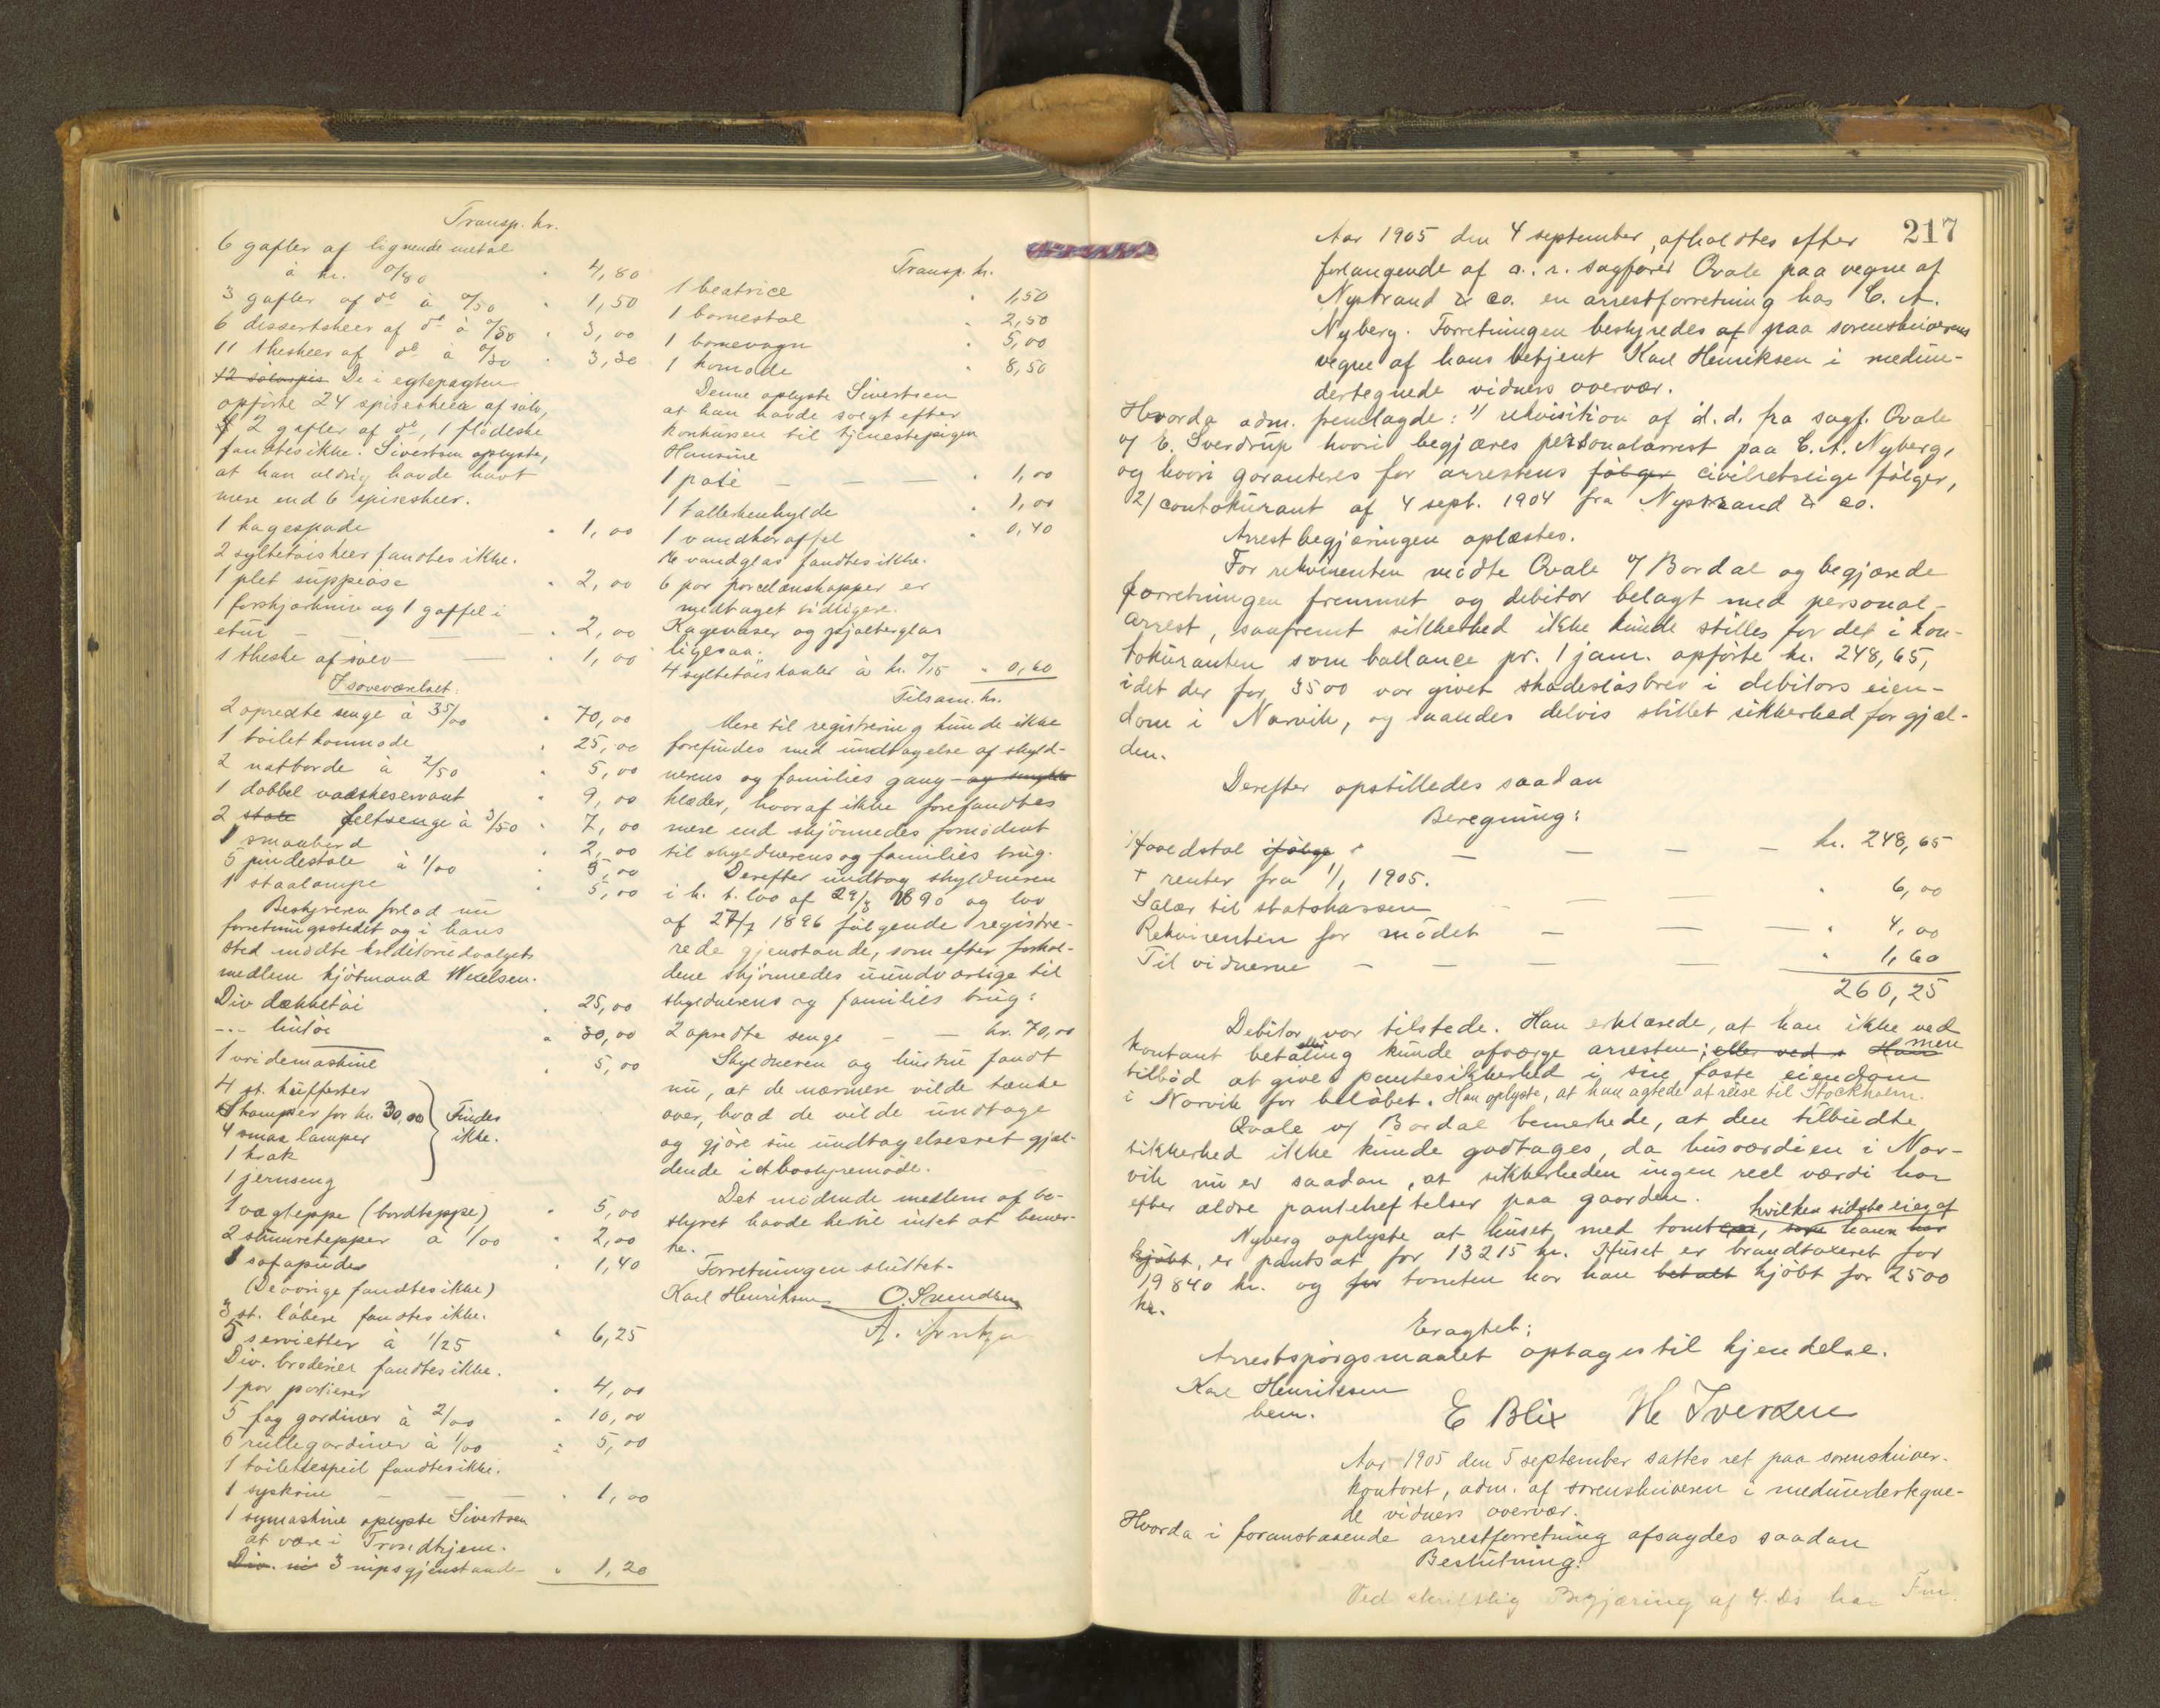 Transp. kr.
6 gafler af lignende metal
à kr. 0/80 " 4,80
3 gafler af do à 0/50 " 1,50
6 dessertskeer af do à 0/50 " 3,00
11 theskeer af do à 0/30 " 3,30
De i egtepagten
opførte 24 spiseskeer af sølv,
2 gafler af do, 1 flödeske
fandtes ikke. Sivertsen oplyste,
at han aldrig havde havt
mere end 6 spiseskeer.
1 kagespade " 1,00
2 syltetøiskeer fandtes ikke.
1 plet suppeøse " 2,00
1 forskjærkniv og 1 gaffel i
etui — — — " 2,00
1 theske af sølv — — " 1,00
I soveværelset:
2 opredte senge à 35/00 " 70,00
1 toiletkommode " 25,00
2 natborde à 2/50 " 5,00
1 dobbel vaskeservant " 9,00
2 stole feltsenge à 3/50 " 7,00
1 smaabord " 2,00
5 pindestole à 1/00 " 5,00
1 staalampe " 5,00
Bestyreren forlod nu
forretningsstedet og i hans
sted mødte kreditorudvalgets
medlem kjøbmand Wexelsen.
Div dækketøi " 25,00
-"- lintøi " 30,00
1 vridemaskine " 5,00
4 st. kufferter
lamper for kr. 30,00 Findes
4 smaa lamper ikke.
1 krak
1 jernseng
1 vægteppe (bordteppe) " 5,00
2 stueuretepper à 1/00 " 2,00
1 sofapuder " 1,40
(De øvrige fandtes ikke)
3 st. løbere fandtes ikke.
5 servietter à 1/25 " 6,25
Div. broderier fandtes ikke.
1 par portierer " 4,00
5 fag gardiner à 2/00 " 10,00
5 rullegardiner à 1/00 " 5,00
1 toiletspeil fandtes ikke.
1 syskrin — — " 1,00
1 symaskine oplyste Sivertsen
at være i Trondhjem.
Div. ni 3 nipsgjenstande " 1,20
Transp. kr.
1 beatrice " 1,50
1 barnestol " 2,50
1 barnevogn " 5,00
1 komode " 8,50
Denne oplyste Sivertsen
at han havde solgt efter
konkursen til tjenestepigen
Hansine
1 paté — — — " 1,00
1 tallerkenhylde " 1,00
1 vandkaraffel " 0,40
16 vandglas fandtes ikke.
6 par porcelænskopper er
medtaget tidligere.
Kagevaser og pjolterglas
ligesaa.
4 syltetøiskaaler à kr. 0/15 " 0,60
Tilsam. kr.
Mere til registrering kunde ikke
forefindes med undtagelse af skyld-
nerens og families gang- og smykke
klæder, hvoraf ikke forefandtes
mere end skjønnedes fornødent
til skyldnerens og families brug.
Derefter undtog skyldneren
i h. t. lov af 29/3 1890 og lov
af 27/7 1896 følgende registre-
rede gjenstande, som efter forhol-
dene skjønnedes uundværlige til
skyldnerens og families brug:
2 opredte senge — — kr. 70,00
Skyldneren og hustru fandt
nu, at de nærmere vilde tænke
over, hvad de vilde undtage
og gjøre sin undtagelsesret gjæl-
dende i et bostyremøde.
Det mødende medlem af bo-
styret havde hertil intet at bemær-
ke.
Forretningen sluttet.
Karl Henriksen O. Svendsen
217
Aar 1905 den 4 september, afholdtes efter
forlangende af o. r. sagfører Qvale paa vegne af
Nystrand & co. en arrestforretning hos C. A.
Nyberg. Forretningen bestyredes af paa sorenskriverens
vegne af hans betjent Karl Henriksen i medun-
dertegnede vidners overvær.
Hvorda adm. fremlagde: 1/ rekvisition af d. d. fra sagf. Qvale
v/ E. Sverdrup hvori begjæres personalarrest paa C. A. Nyberg,
og hvori garanteres for arrestens følger civilretslige følger,
2/ contokurant af 4 sept. 1904 fra Nystrand & co.
Arrestbegjæringen oplæstes.
For rekvirenten mødte Qvale v/ Bordal og begjærede
forretningen fremmet og debitor belagt med personal-
arrest, saafremt sikkerhed ikke kunde stilles for det i kon-
tokuranten som ballance pr. 1 janr. opførte kr. 248,65,
idet der for 3500 var givet skadesløsbrev i debitors eien-
dom i Narvik, og saaledes delvis stillet sikkerhed for gjæl-
den.
Derefter opstilledes saadan
Beregning:
Hovedstol ifølge — — — — kr. 248,65
+ renter fra 1/1 1905.
Salær til statskassen — — — " 6,00
Rekvirenten for mødet — — — " 4,00
Til vidnerne — — — — " 1,60
260,25
Debitor var tilstede. Han erklærede, at han ikke ved
kontant betaling kunde afværge arresten; eller ved Han men
tilbød at give pantesikkerhed i sin faste eiendom
i Narvik for beløbet. Han oplyste, at han agtede at reise til Stockholm.
Qvale v/ Bordal bemerkede, at den tilbudte
sikkerhed ikke kunde godtages, da husværdien i Nar-
vik nu er saadan, at sikkerheden ingen reel værdi har
efter ældre pantehæftelser paa gaarden. hvilken sidste eies af
Nyberg oplyste at huset med tomten, som ham har
kjøbt, er pantsat for 13215 kr. Huset er brandtaxeret for
19840 kr. og for tomten har han betalt kjøbt for 2500
kr.
Eragtet:
Arrestspørgsmaalet optages til kjendelse.
Karl Henriksen
bem. E Blix He Iversen
Aar 1905 den 5 september sattes ret paa sorenskriver-
kontoret, adm. af sorenskriveren i medundertegne-
de vidners overvær.
Hvorda i foranstaaende arrestforretning afsagdes saadan
Beslutning:
Ved skriftlig Begjæring af 4. ds har